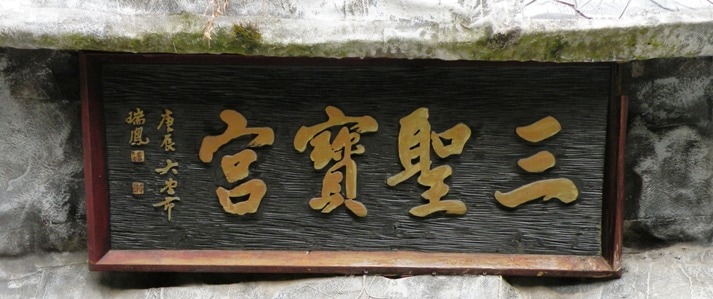 三聖寶宮
庚辰六安市
瑞鳳